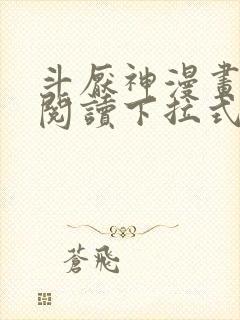 斗厭神漫畫
閱讀下拉式
蒼飛